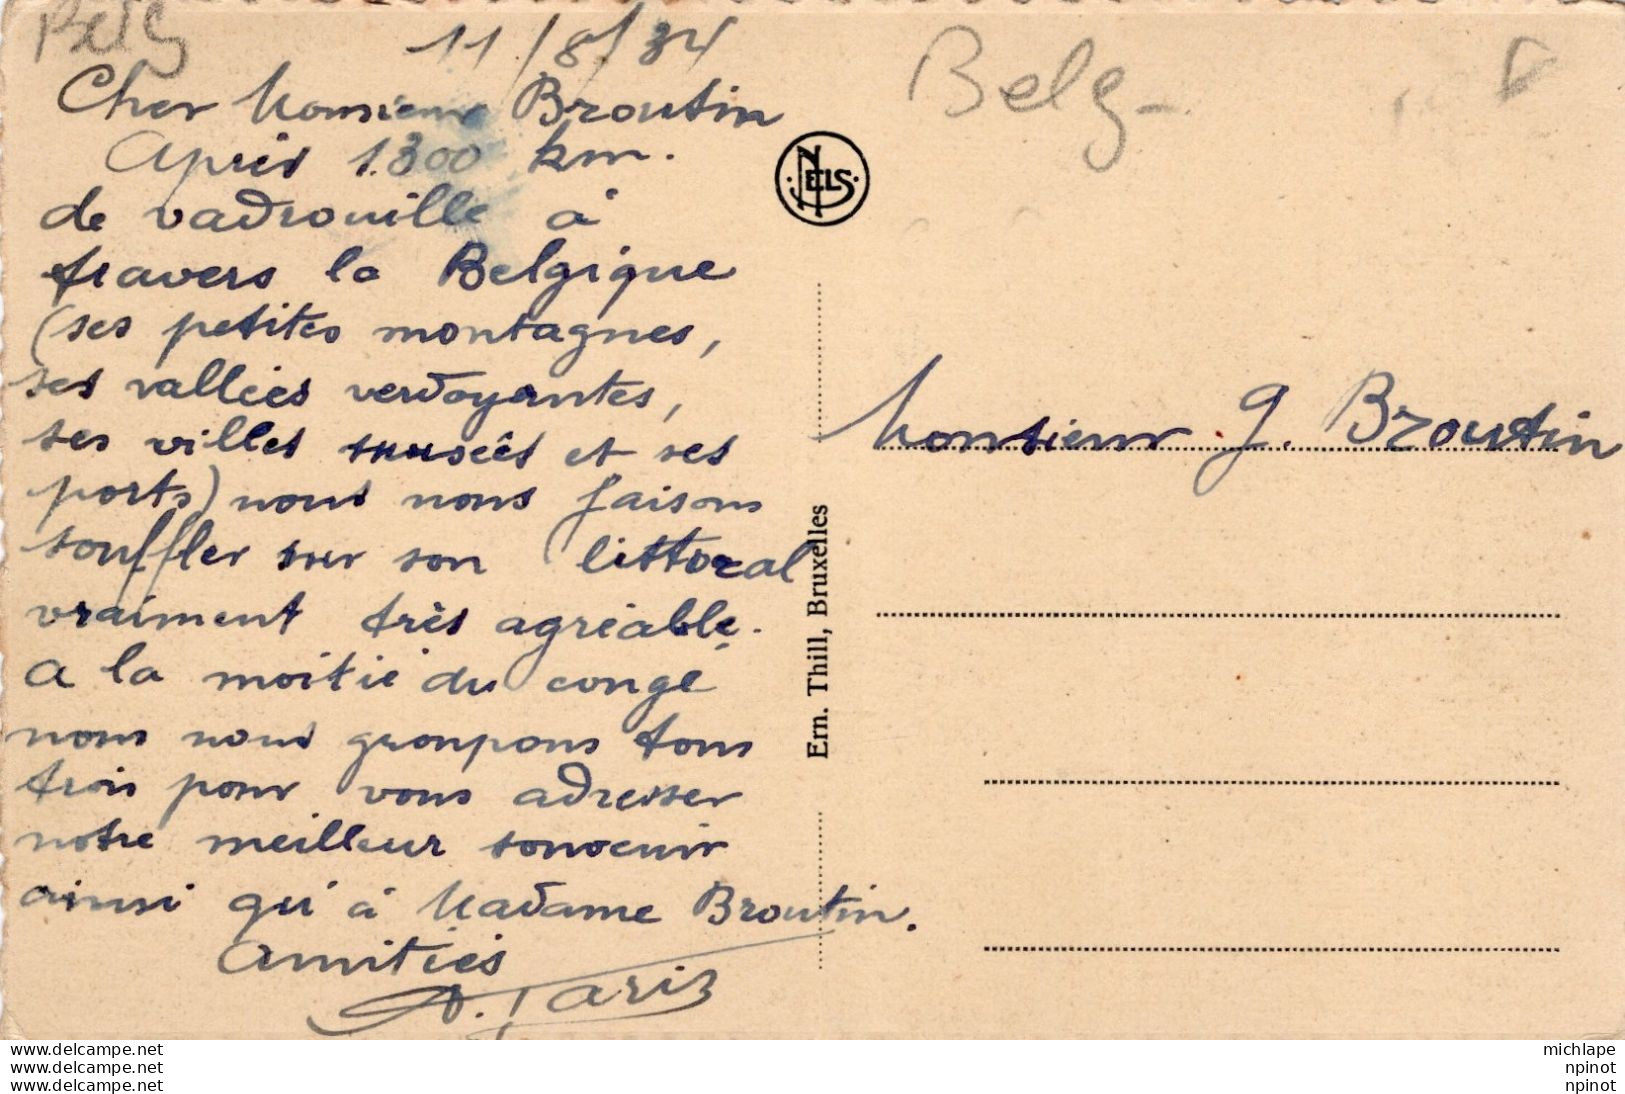 Belg
11/8/34
Cher Monsieur Broutin
Après 1.300 km.
de vadrouille à
travers la Belgique
(ses petites montagnes,
ses vallées verdoyantes,
ses villes musées et ses
ports) nous nous faisons
souffler sur son littoral
vraiment très agréable.
A la moitié du congé
nous nous groupons tous
trois pour vous adresser
notre meilleur souvenir
ainsi qu'à Madame Broutin.
Amitiés
A. Paris
NELS
Ern. Thill, Bruxelles
Belg-
Monsieur G. Broutin
www.delcampe.net
www.delcampe.net
www.delcampe.net
michlape
npinot
npinot